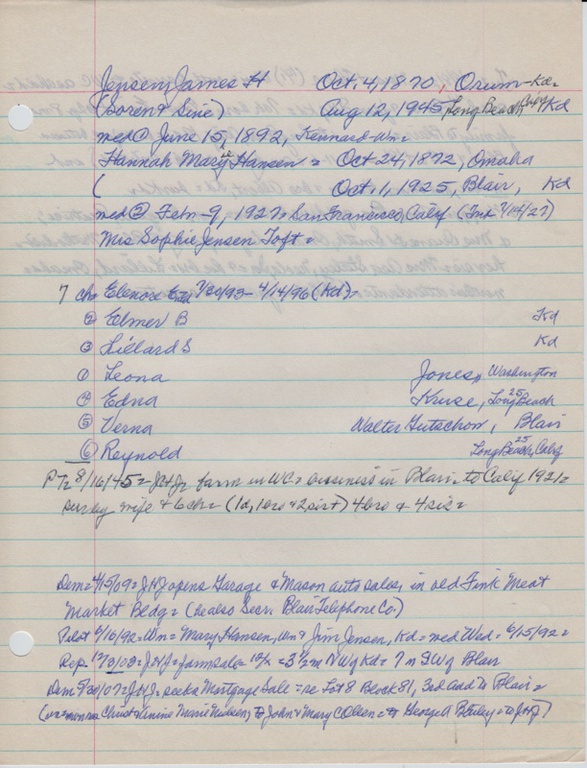 Jensen, James H Oct. 4, 1870, Orum - Kd.
(Soren & Sine) Aug 12, 1945, Long Beach, Calif Kd
med ① June 15, 1892, Kennard - Wn =
Hannah Mary Hansen = Oct 24, 1872, Omaha
( Oct. 1, 1925, Blair, Kd
med ② Feb - 9, 1927, San Francisco, Calif. (Ink 4/14/27)
Mrs Sophie Jensen Toft =
7 ch = Elenore 7/30/93 - 4/14/96 (Kd) =
② Elmer B Kd
③ Lillard S Kd
① Leona Jones, Washington
④ Edna Kruse, Long Beach 25
⑤ Verna Walter Gutschow, Blair
⑥ Reynold Long Beach, Calif 25
PTr 8/16/45 = JHJ farm in WC = business in Blair - to Calif 1921 =
surv by wife & 6 ch = (1d, 1bro & 2sist) 4bro & 4sis =
Dem = 4/15/09 = JHJ opens Garage & Mason auto sales, in old Fink Meat
Market Bldg = (he also Secr. Blair Telephone Co.)
Pilot 6/16/92 = Wn = Mary Hansen, Wn & Jim Jensen, Kd = med Wed = 6/15/92 =
Rep. 12/3/03 = JHJ = farm sale = = 3 1/2 m NW of Kd = 7 m SW of Blair
Dem 9/30/07 = JHJ = seeks Mortgage Sale = re Lot 8 Block 81, 3rd add to Blair =
Christ & Anine Marie Nielsen, to John & Mary C Olsen = to George A = to JHJ)